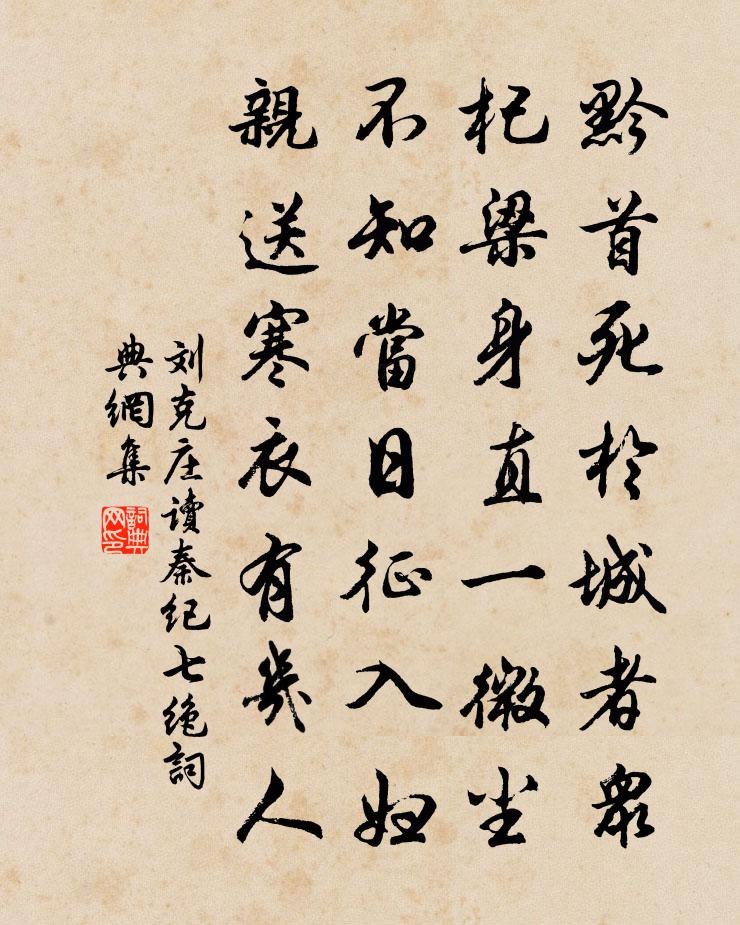 黔首死於城者眾
杞梁身直一微尘
不知當日征入妇
親送寒衣有幾人
刘克庄读秦纪七绝詞
典網集
詞典
网印